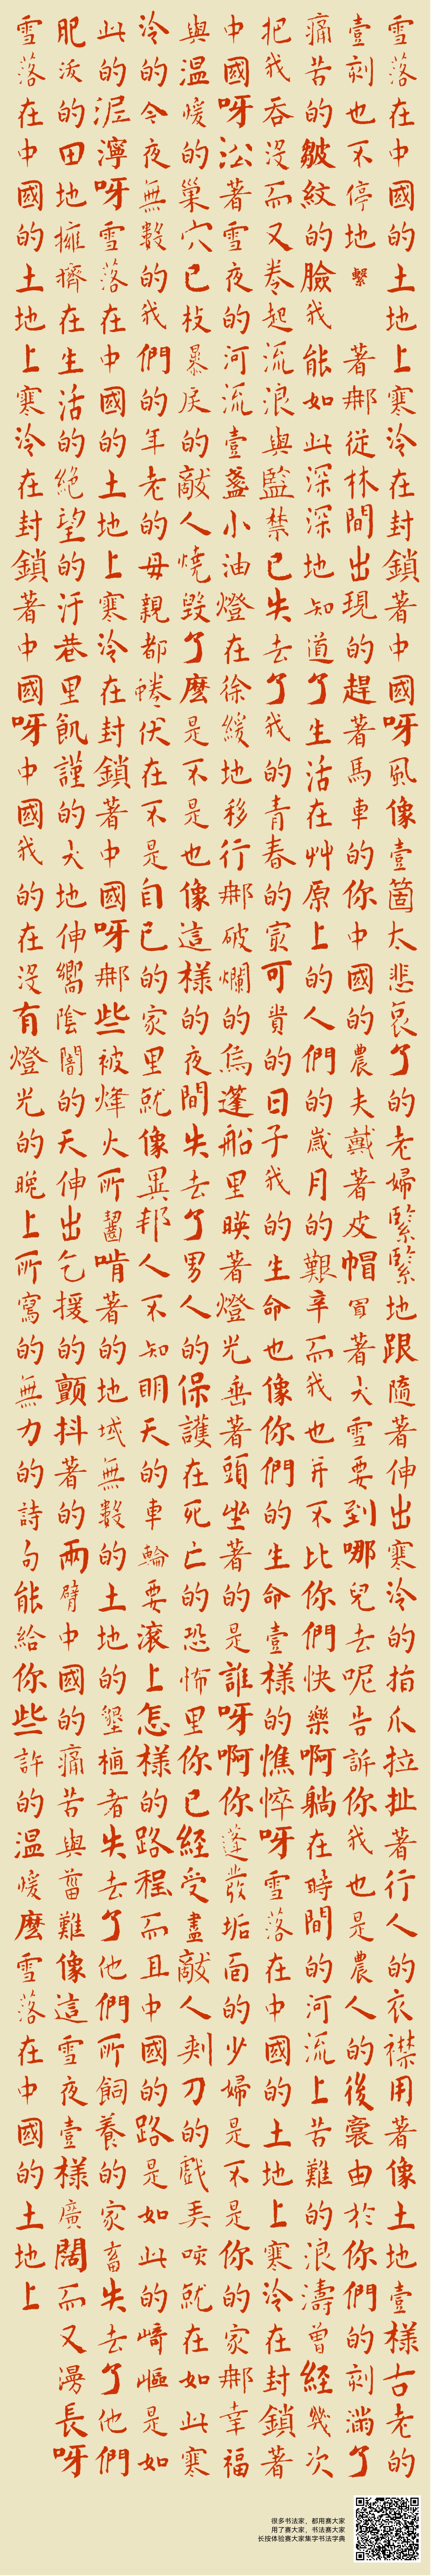 雪落在中國的土地上寒冷在封鎖著中國呀風像壹箇太悲哀了的老婦緊緊地跟隨著伸出寒冷的指爪拉扯著行人的衣襟用著像土地壹樣古老的
壹刻也不停地繫著那從林間出現的趕著馬車的你中國的農夫戴著皮帽冒著大雪要到哪兒去呢告訴你我也是農人的後裔由於你們的刻滿了
痛苦的皺紋的臉我能如此深深地知道了生活在艸原上的人們的歲月的艱辛而我也并不比你們快樂啊躺在時間的河流上苦難的浪濤曾經幾次
把我吞沒而又卷起流浪與監禁已失去了我的青春的最可貴的日子我的生命也像你們的生命壹樣的憔悴呀雪落在中國的土地上寒冷在封鎖著
中國呀沿著雪夜的河流壹盞小油燈在徐緩地移行那破爛的烏蓬船里映著燈光垂著頭坐著的是誰呀啊你蓬發垢面的少婦是不是你的家那幸福
與溫暖的巢穴已被暴戾的敵人燒毀了麼是不是也像這樣的夜間失去了男人的保護在死亡的恐怖里你已經受盡敵人刺刀的戲弄咳就在如此寒
冷的今夜無數的我們的年老的母親都蜷伏在不是自己的家里就像異邦人不知明天的車輪要滾上怎樣的路程而且中國的路是如此的崎嶇是如
此的泥濘呀雪落在中國的土地上寒冷在封鎖著中國呀那些被烽火所齧啃著的地域無數的土地的墾植者失去了他們所飼養的家畜失去了他們
肥沃的田地擁擠在生活的絕望的汙巷里飢謹的大地伸嚮陰闇的天伸出乞援的顫抖著的兩臂中國的痛苦與菑難像這雪夜壹樣廣闊而又漫長呀
雪落在中國的土地上寒冷在封鎖著中國呀中國我的在沒有燈光的晚上所寫的無力的詩句能給你些許的溫暖麼雪落在中國的土地上
很多书法家，都用赛大家
用了赛大家，书法赛大家
长按体验赛大家集字书法字典